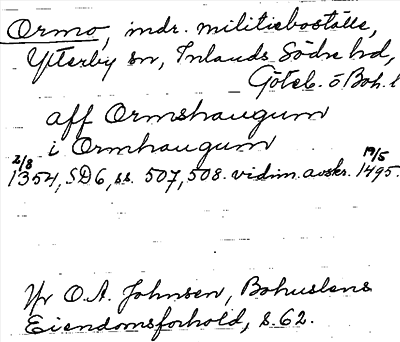 Ormo, mdr. militieboställe,
Ytterby sn, Inlands Södre hd,
Göteb. o Boh. l
aff Ormshaugum
i Ormhaugum
2/8 19/5
1354, SD6, ss. 507, 508. vidim. avskr. 1495.
Yr O.A. Johnsen, Bohuslens
Eiendomsforhold, s. 62.